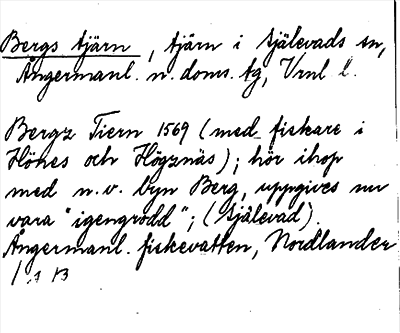 Bergs tjärn, tjärn i Själevads sn,
Ångermanl. n. doms. tg, Vrnl l.
Bergz Tiern 1569 (med fiskare i
Hönes och Högznäs); hör ihop
med n.v. byn Berg, uppgives nu
vara "igengrodd"; (Själevad).
Ångermanl. fiskevatten, Nordlander